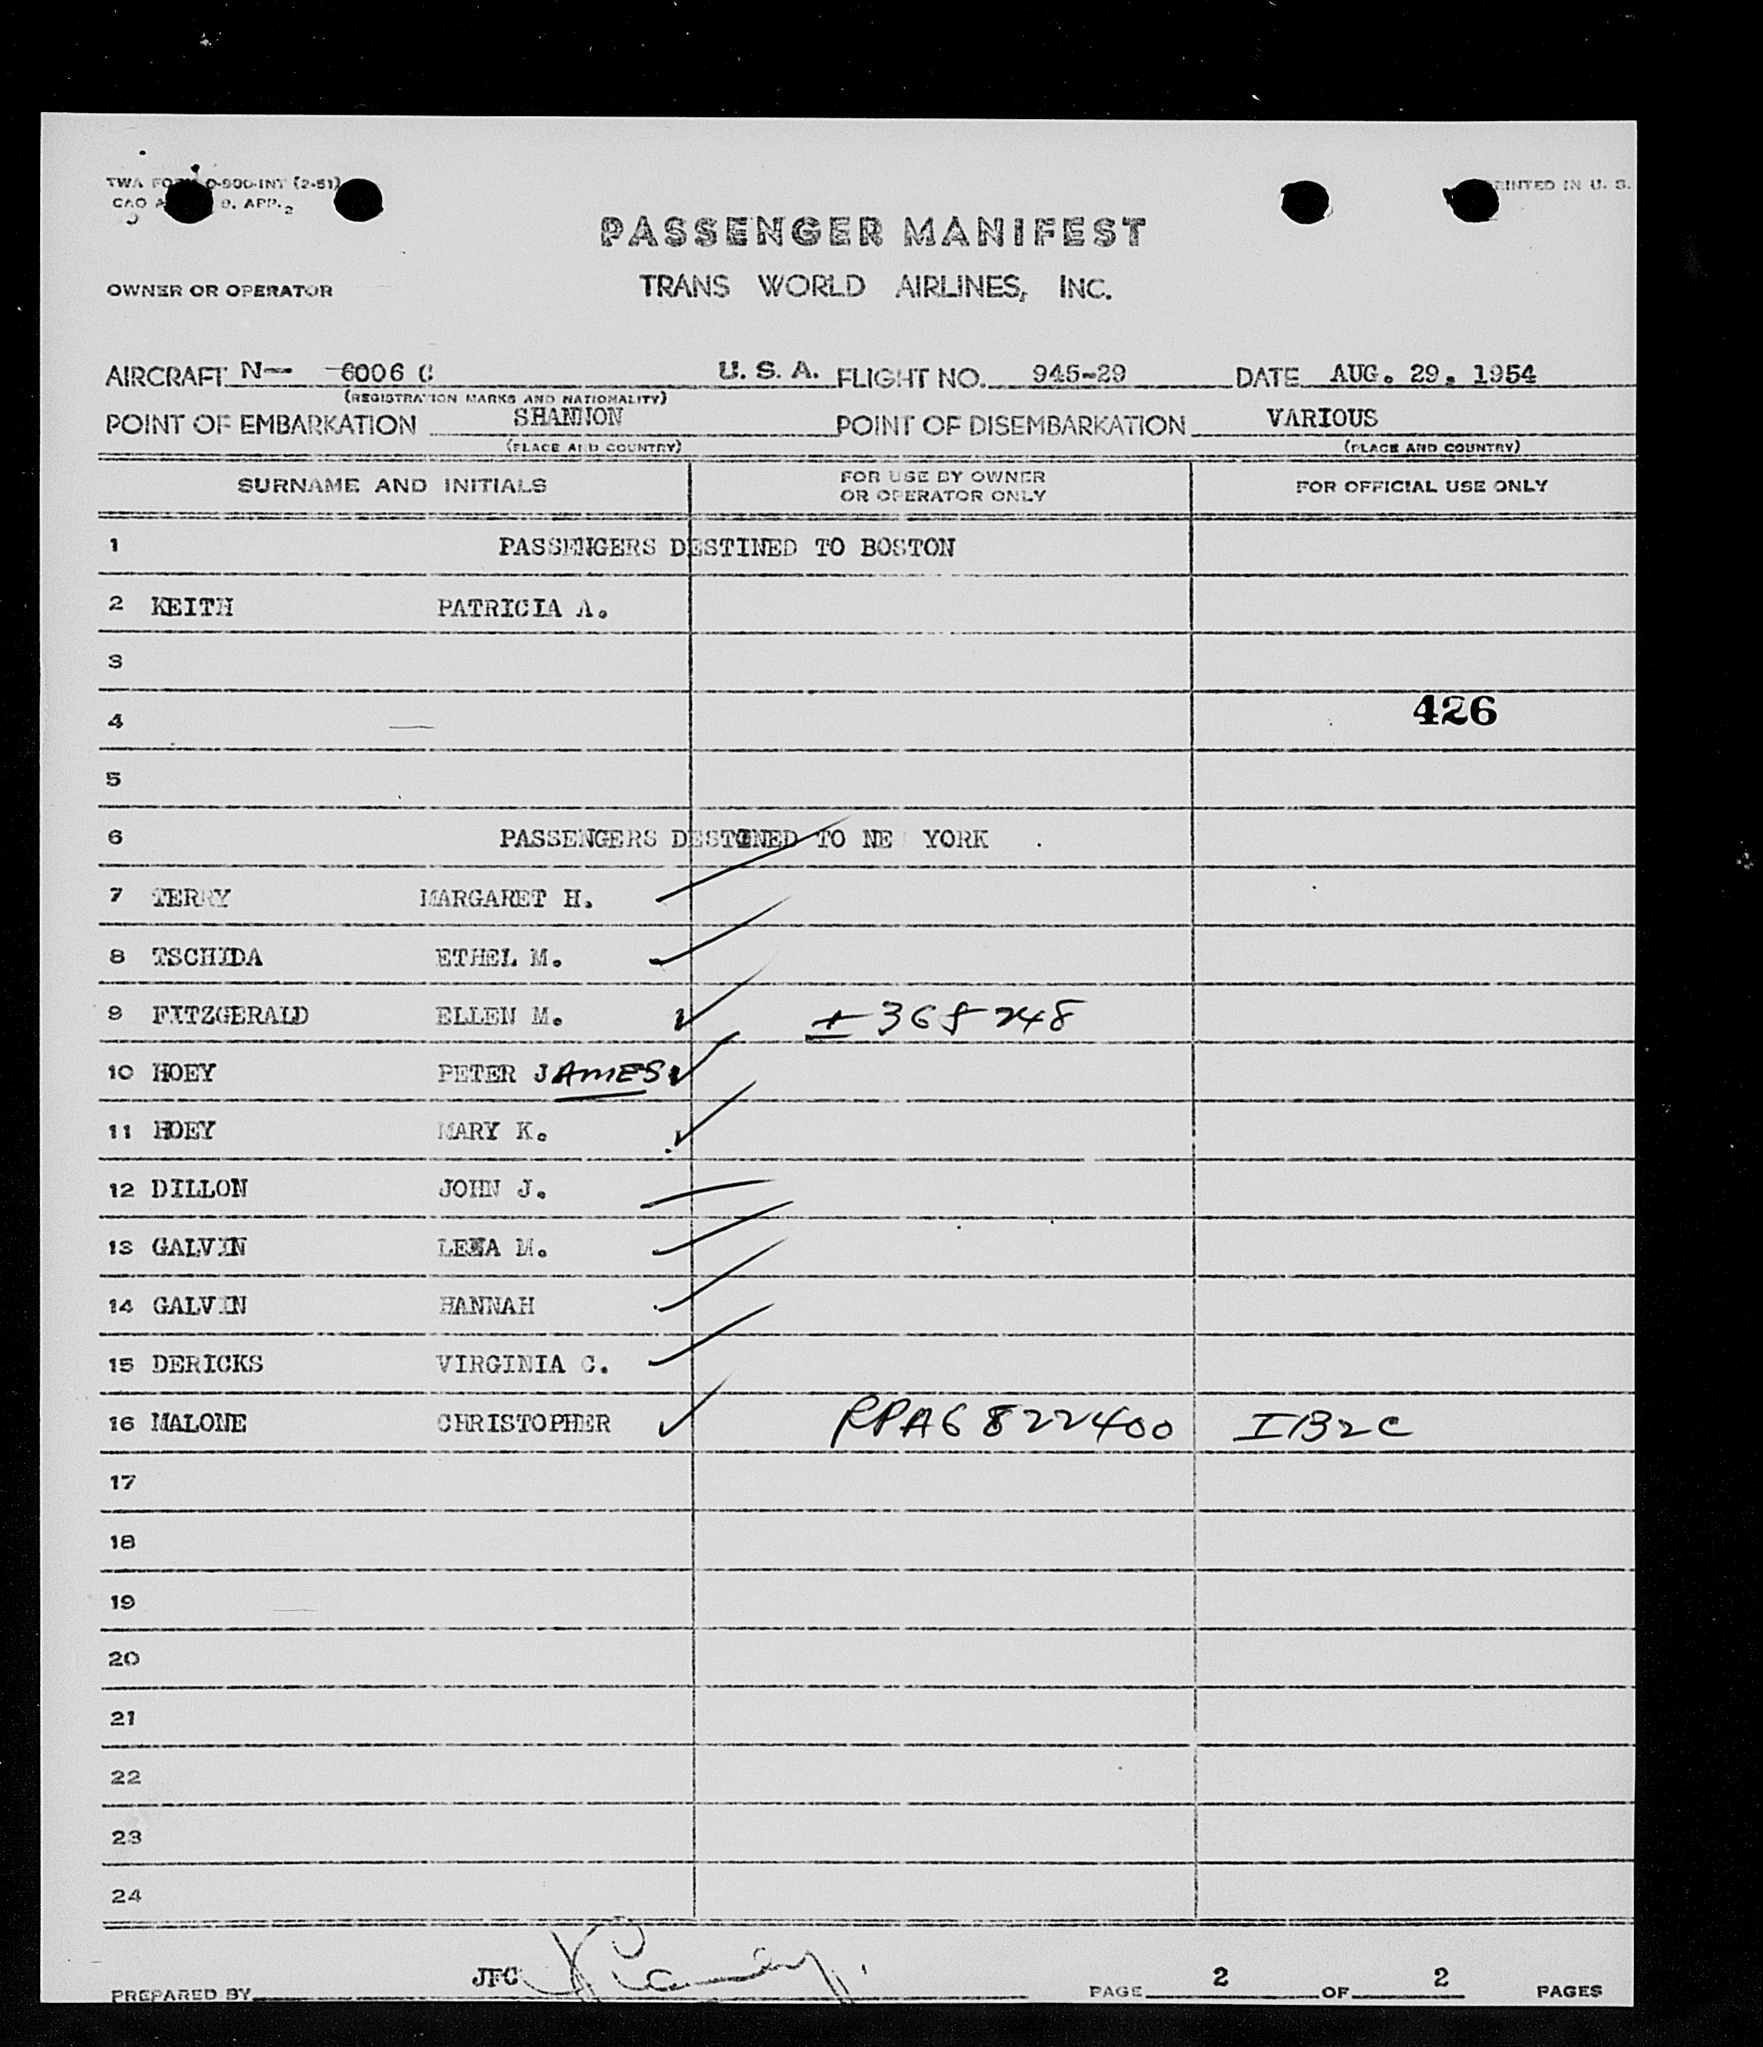 TWA FORM O-900-INT (2-51)
PRINTED IN U. S.
CAO 9. APP. 2
PASSENGER MANIFEST
OWNER OR OPERATOR TRANS WORLD AIRLINES, INC.
AIRCRAFT N-- 6006 C U. S. A. FLIGHT NO. 945-29 DATE AUG. 29, 1954
(REGISTRATION MARKS AND NATIONALITY)
POINT OF EMBARKATION SHANNON POINT OF DISEMBARKATION VARIOUS
(PLACE AND COUNTRY) (PLACE AND COUNTRY)
SURNAME AND INITIALS FOR USE BY OWNER OR OPERATOR ONLY FOR OFFICIAL USE ONLY
1 PASSENGERS DESTINED TO BOSTON
2 KEITH PATRICIA A.
3
4 426
5
6 PASSENGERS DESTINED TO NE YORK
7 TERRY MARGARET H.
8 TSCHIDA ETHEL M.
9 FITZGERALD ELLEN M. ✓ 368248
10 HOEY PETER JAMES ✓
11 HOEY MARY K. ✓
12 DILLON JOHN J.
13 GALVIN LENA M.
14 GALVIN HANNAH
15 DERICKS VIRGINIA C.
16 MALONE CHRISTOPHER ✓ RPA6822400 IB2C
17
18
19
20
21
22
23
24
PREPARED BY JFC PAGE 2 OF 2 PAGES